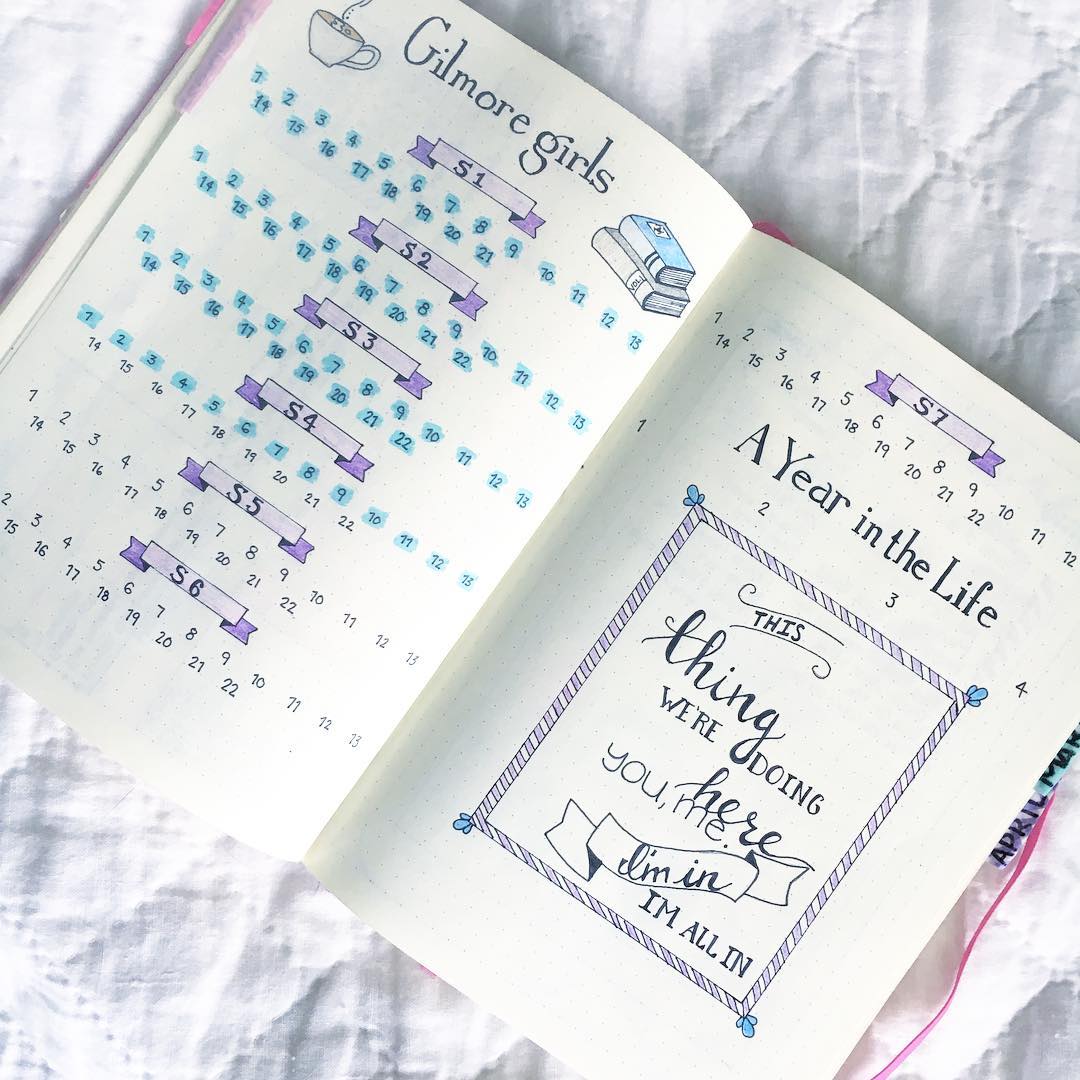 Gilmore girls
VOL
S1
1 2 3 4 5 6 7 8 9 10 11 12 13
14 15 16 17 18 19 20 21
S2
1 2 3 4 5 6 7 8 9 10 11 12 13
14 15 16 17 18 19 20 21 22
S3
1 2 3 4 5 6 7 8 9 10 11 12 13
14 15 16 17 18 19 20 21 22
S4
1 2 3 4 5 6 7 8 9 10 11 12 13
14 15 16 17 18 19 20 21 22
S5
1 2 3 4 5 6 7 8 9 10 11 12 13
14 15 16 17 18 19 20 21 22
S6
2 3 4 5 6 7 8 9 10 11 12 13
15 16 17 18 19 20 21 22
S7
1 2 3 4 5 6 7 8 9 10 11 12
14 15 16 17 18 19 20 21 22
A Year in the Life
1 2 3 4
THIS
thing
WE'RE DOING
here
you, me.
I'm in
I'M ALL IN
APRIL